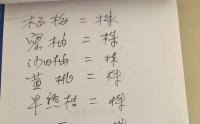 杨梅 = 株
蜜柚 = 株
沙田柚 = 株
黄桃 = 株
早熟桔 = 株